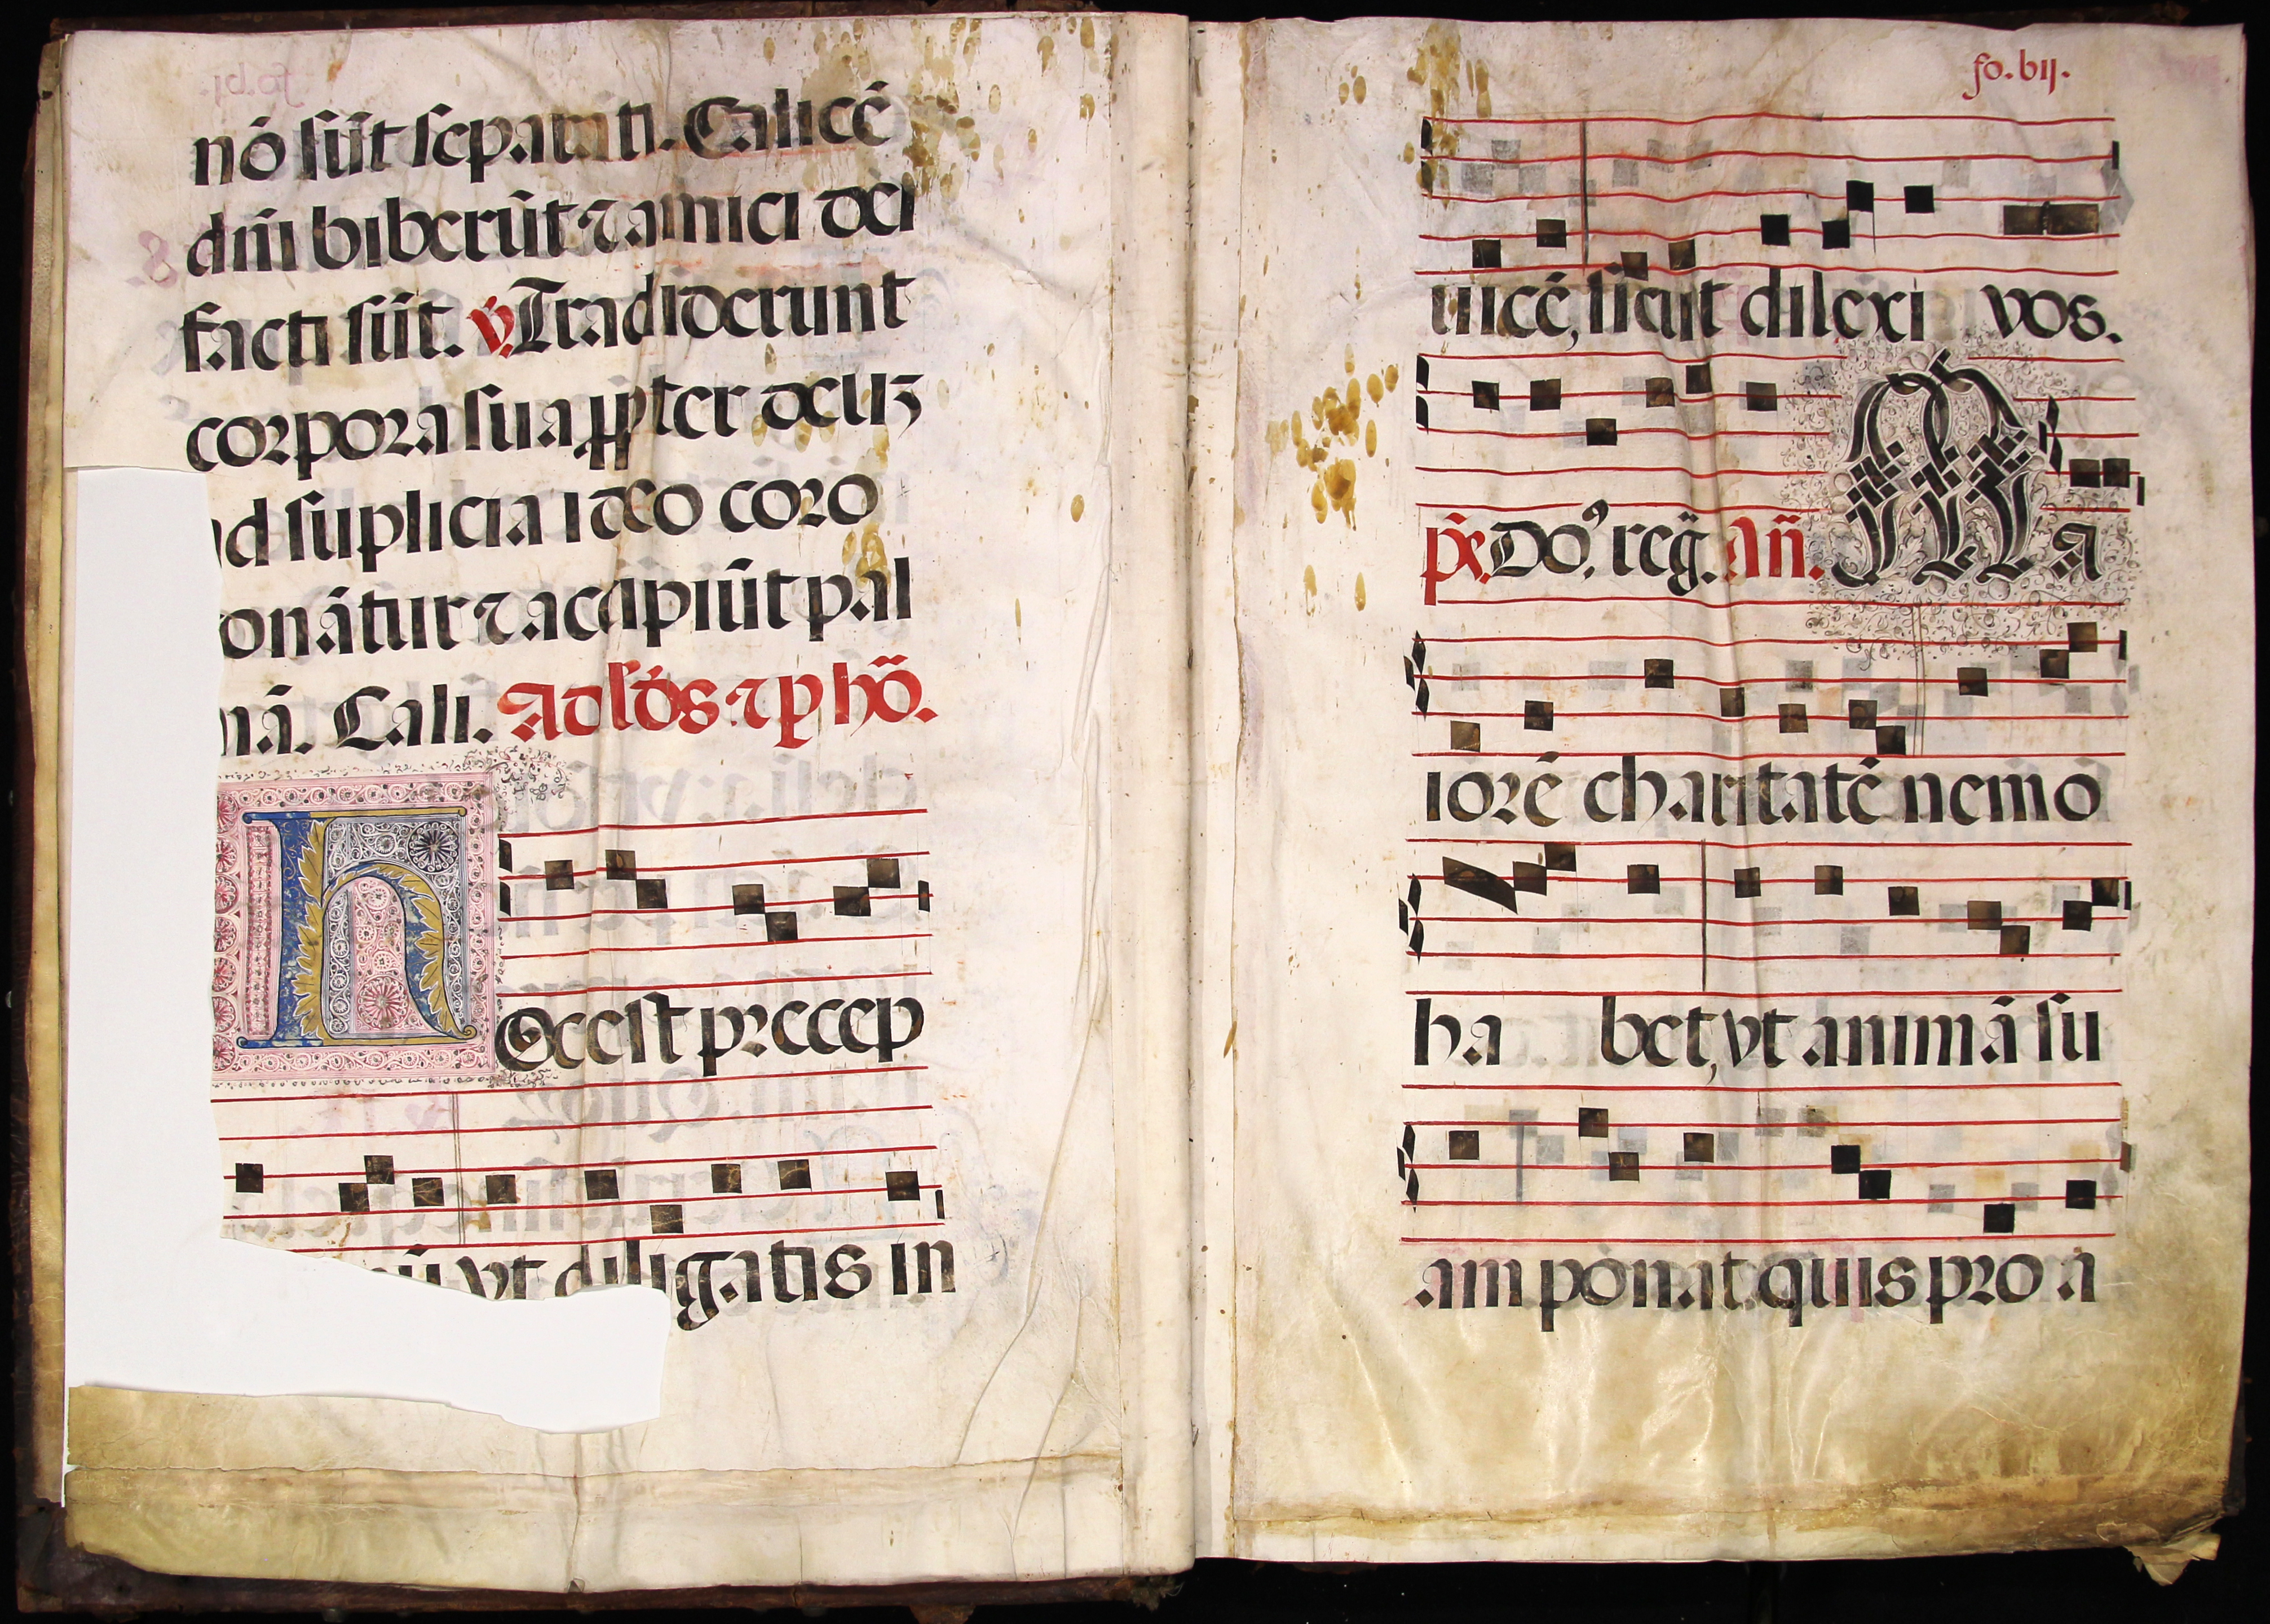 nō sūt separati. Calicē
dñi biberūt ⁊ amici dei
facti sūt. ℣. Tradiderunt
corpora sua ꝓpter deuʒ
ad suplicia ideo coro
onātur ⁊ accipiūt pal
mā. Cali. Ad lādes ⁊ p hō.
Hoc est precep
ū vt diligatis in
fo. vij.
uicē, sicut dilexi vos.
ps. Do.⁹ reg̃. Añ. Ma
iorē charitatē nemo
habet, vt animā su
am ponat. quis pro a